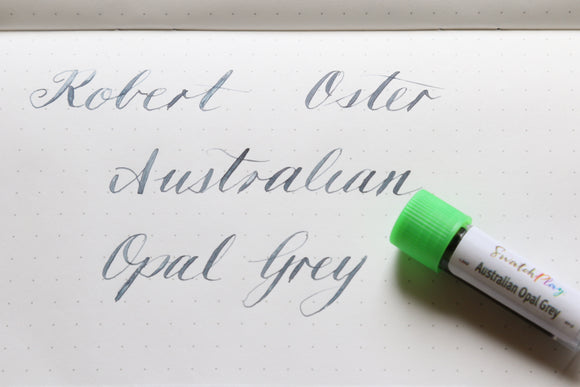 Robert Oster
Australian
Opal Grey
SwatchPlay
Australian Opal Grey